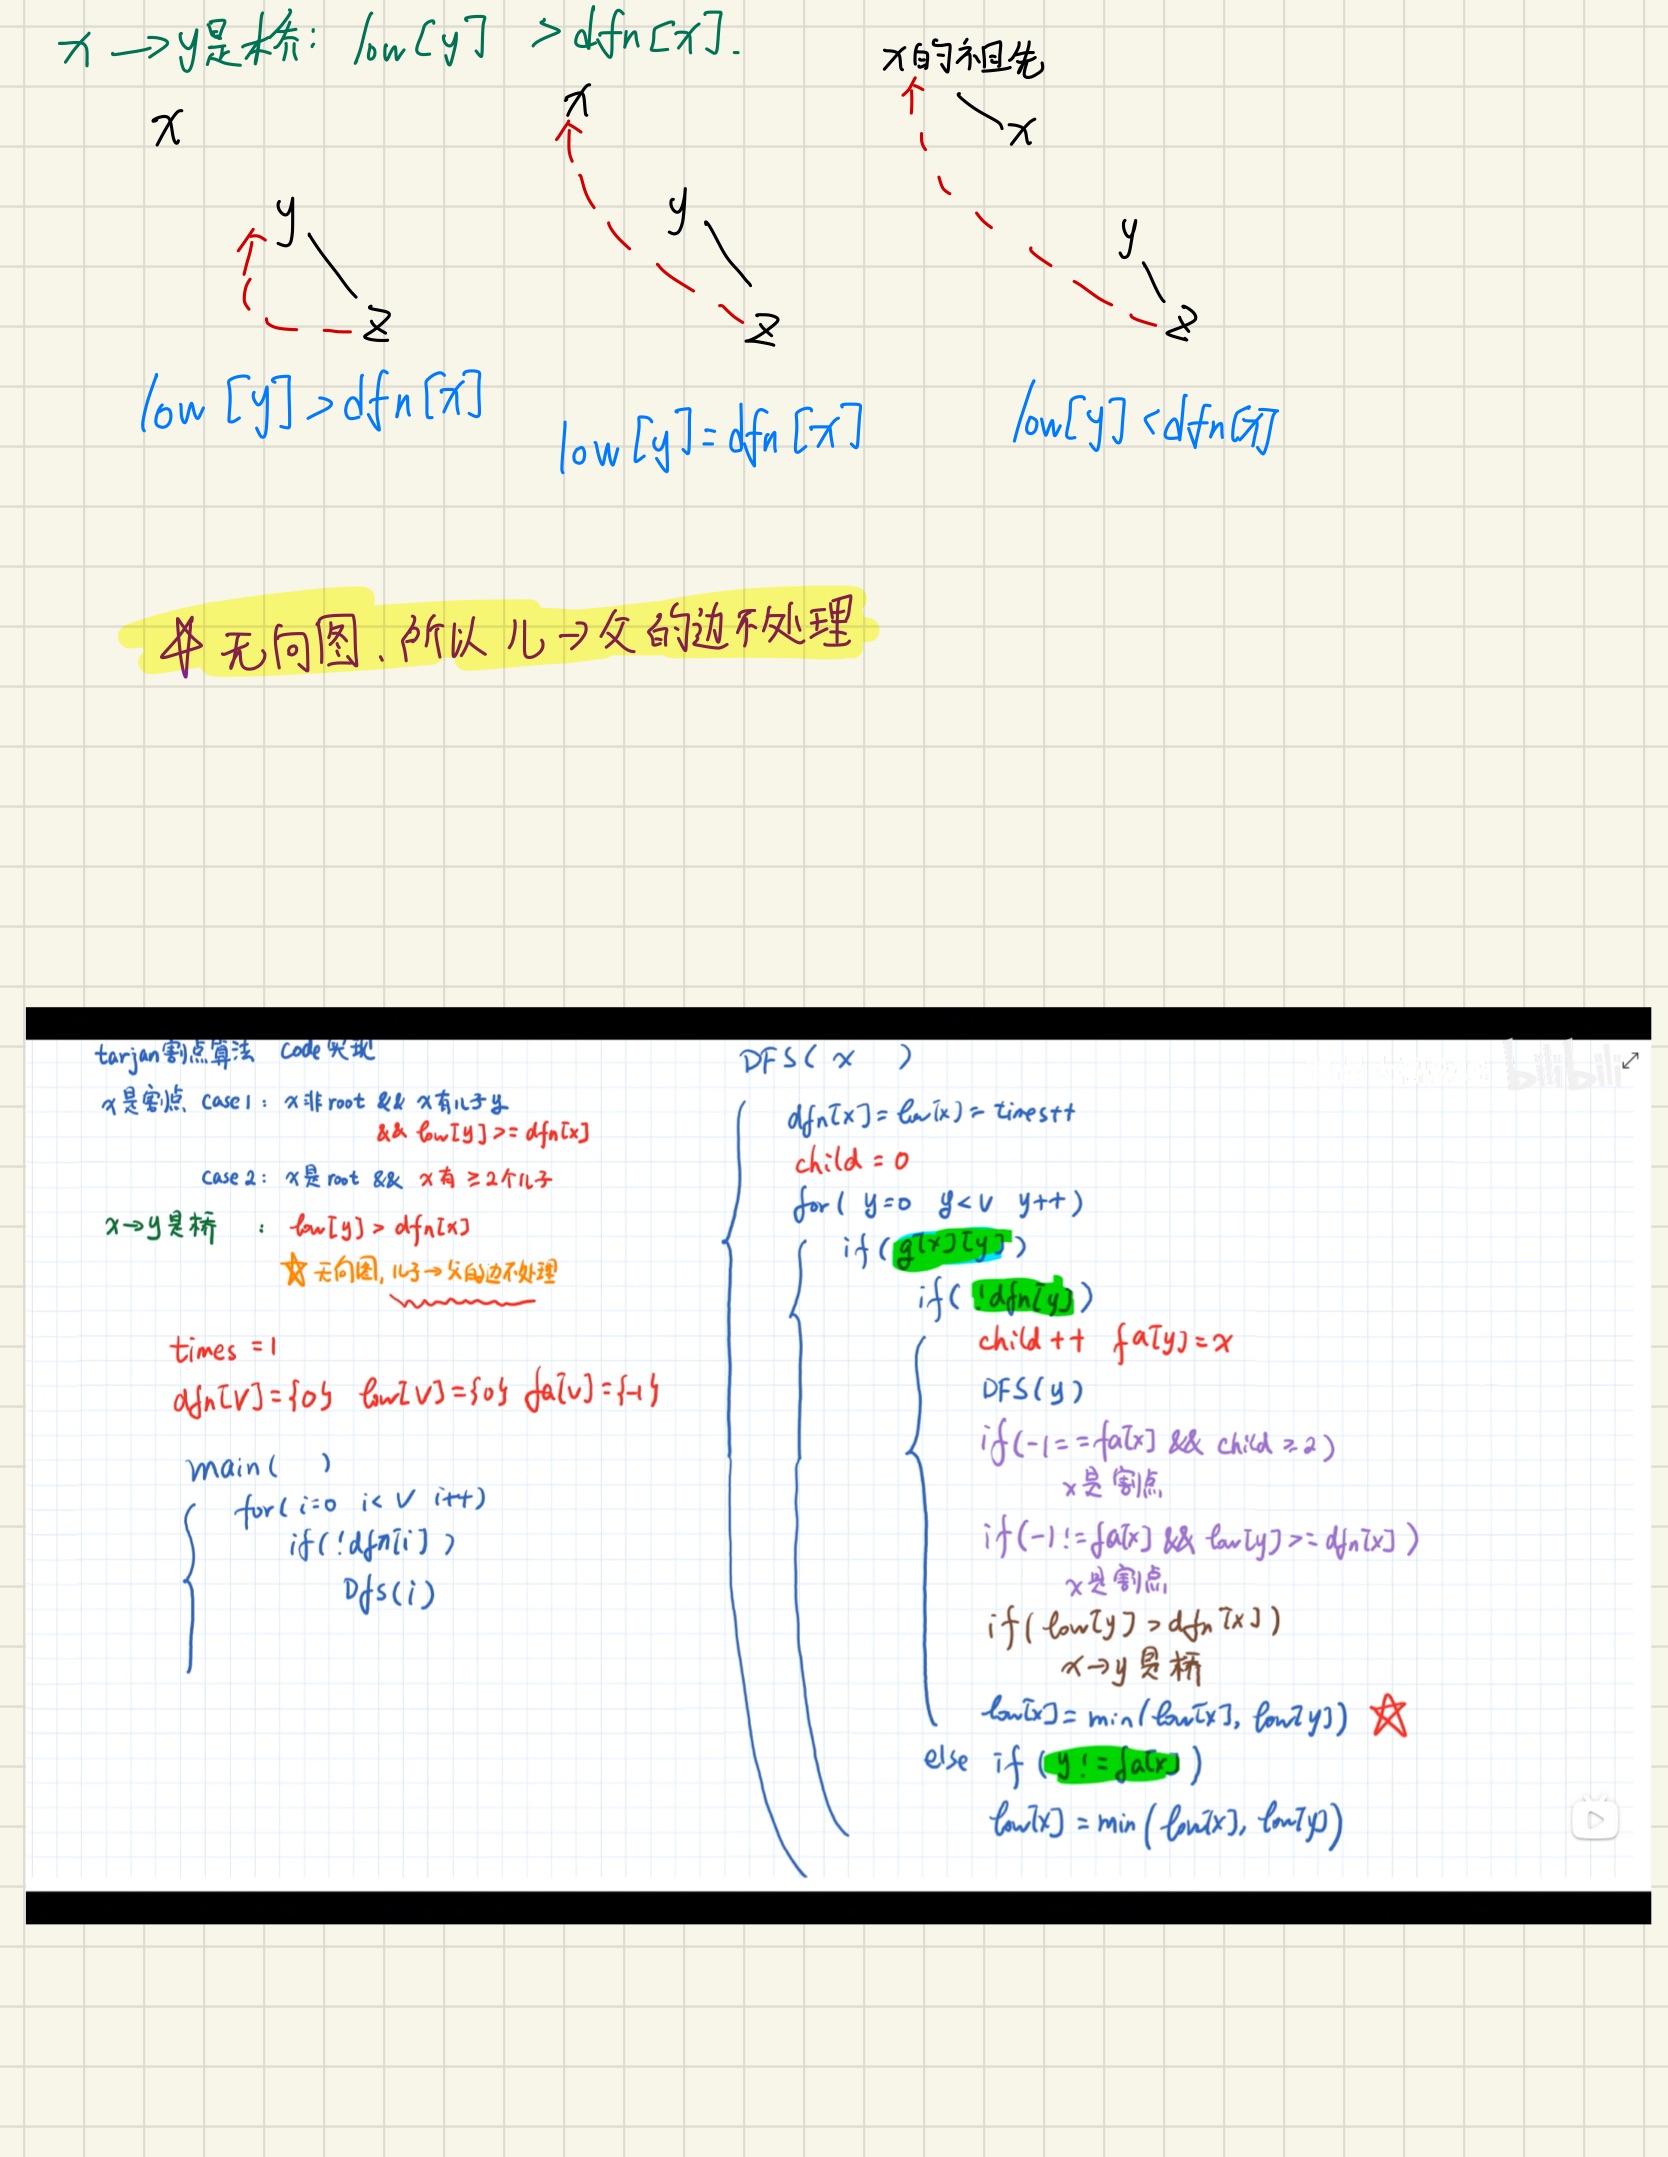 x→y是桥: low[y] >dfn[x].
x的祖先
x
x
x
y
y
y
z
z
z
low[y]>dfn[x]
low[y]=dfn[x]
low[y]<dfn[x]
☆无向图、所以儿→父的边不处理
tarjan割点算法 Code实现
x是割点 Case1: x非root && x有儿子y
&& low[y]>=dfn[x]
Case 2: x是root && x有≥2个儿子
x→y是桥 : low[y]>dfn[x]
☆无向图,儿子→父的边不处理
times=1
dfn[V]={0} low[V]={0} fa[v]={-1}
main( )
for(i=0 i<V i++)
if(!dfn[i])
Dfs(i)
DFS(x )
dfn[x]=low[x]=times++
child=0
for( y=0 y<V y++)
if(g[x][y])
if(!dfn[y])
child++ fa[y]=x
DFS(y)
if(-1==fa[x] && child≥2)
x是割点
if(-1!=fa[x] && low[y]>=dfn[x])
x是割点
if(low[y]>dfn[x])
x→y是桥
low[x]=min(low[x], low[y]) ☆
else if (y!=fa[x])
low[x]=min(low[x], low[y])
bilibili